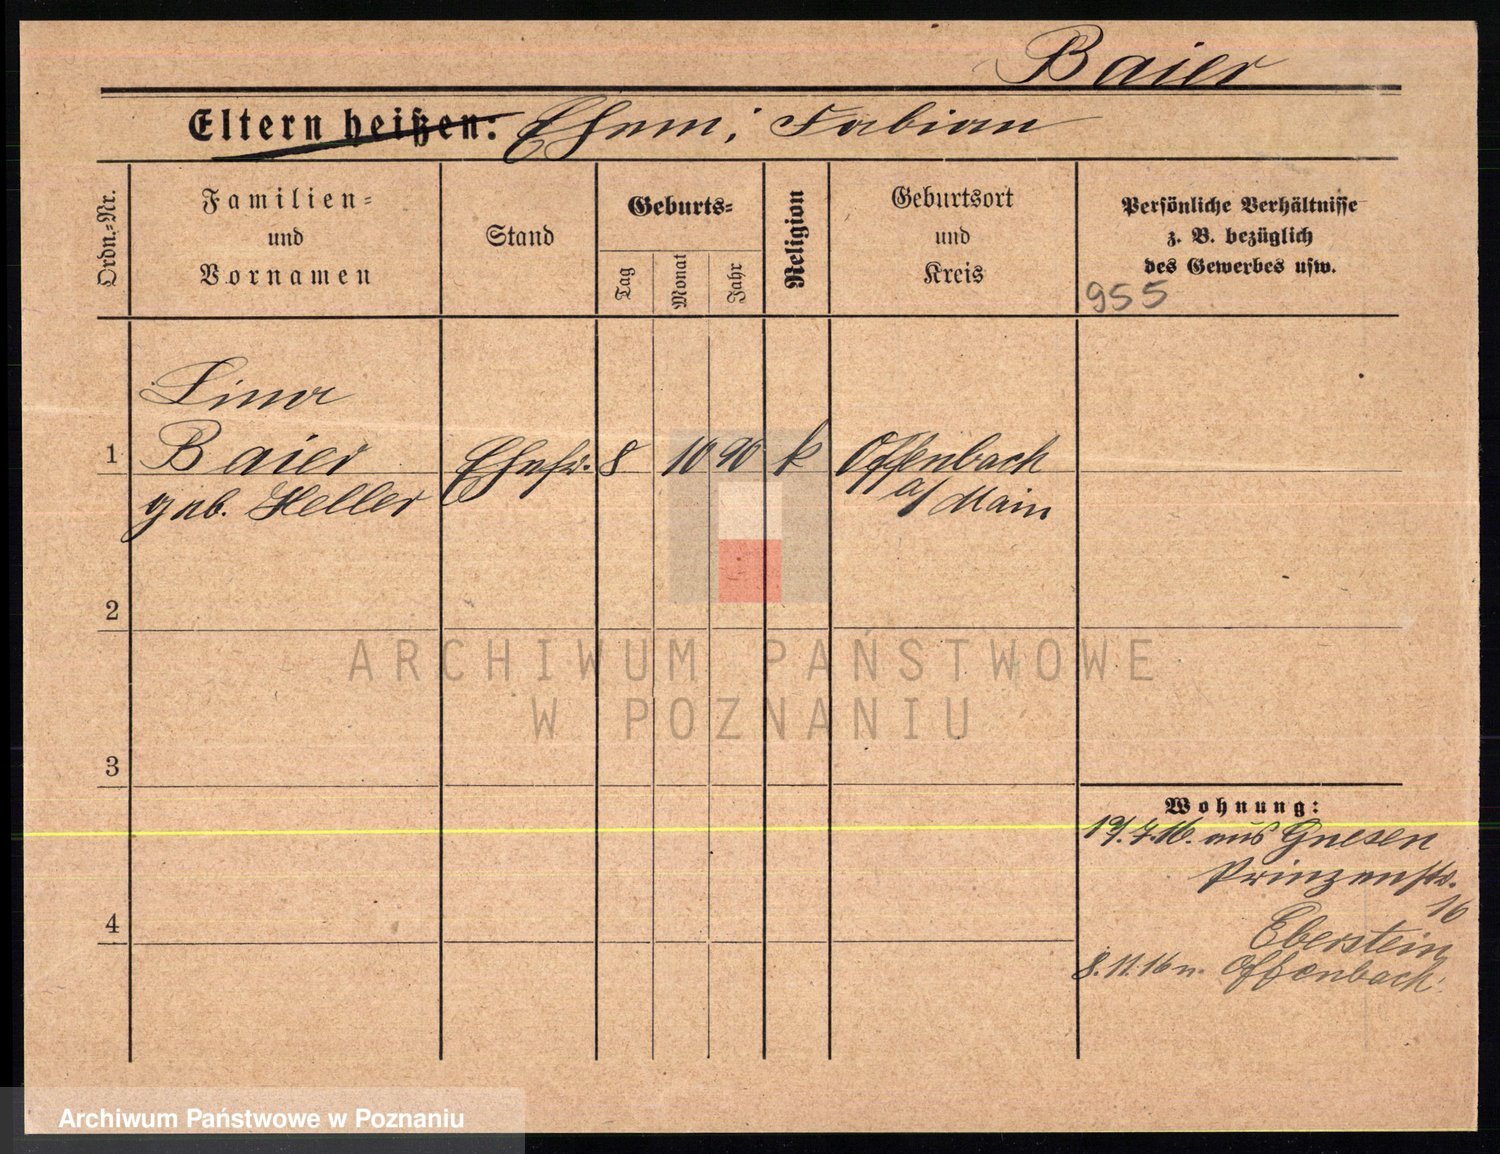 Baier
Eltern heißen: Ehem: Fabian
Ordn.-Nr.
Familien-
und
Vornamen
Stand
Geburts-
Tag
Monat
Jahr
Religion
Geburtsort
und
Kreis
Persönliche Verhältnisse
z. B. bezüglich
des Gewerbes usw.
955
Lina
1 Baier Ehefr. 8 10 90 k Offenbach
geb. Heller a/ Main
2
ARCHIWUM PAŃSTWOWE
W POZNANIU
3
Wohnung:
19.7.16. aus Gnesen
Prinzenstr.
16
4
Eberstein
8.11.16 n. Offenbach.
Archiwum Państwowe w Poznaniu